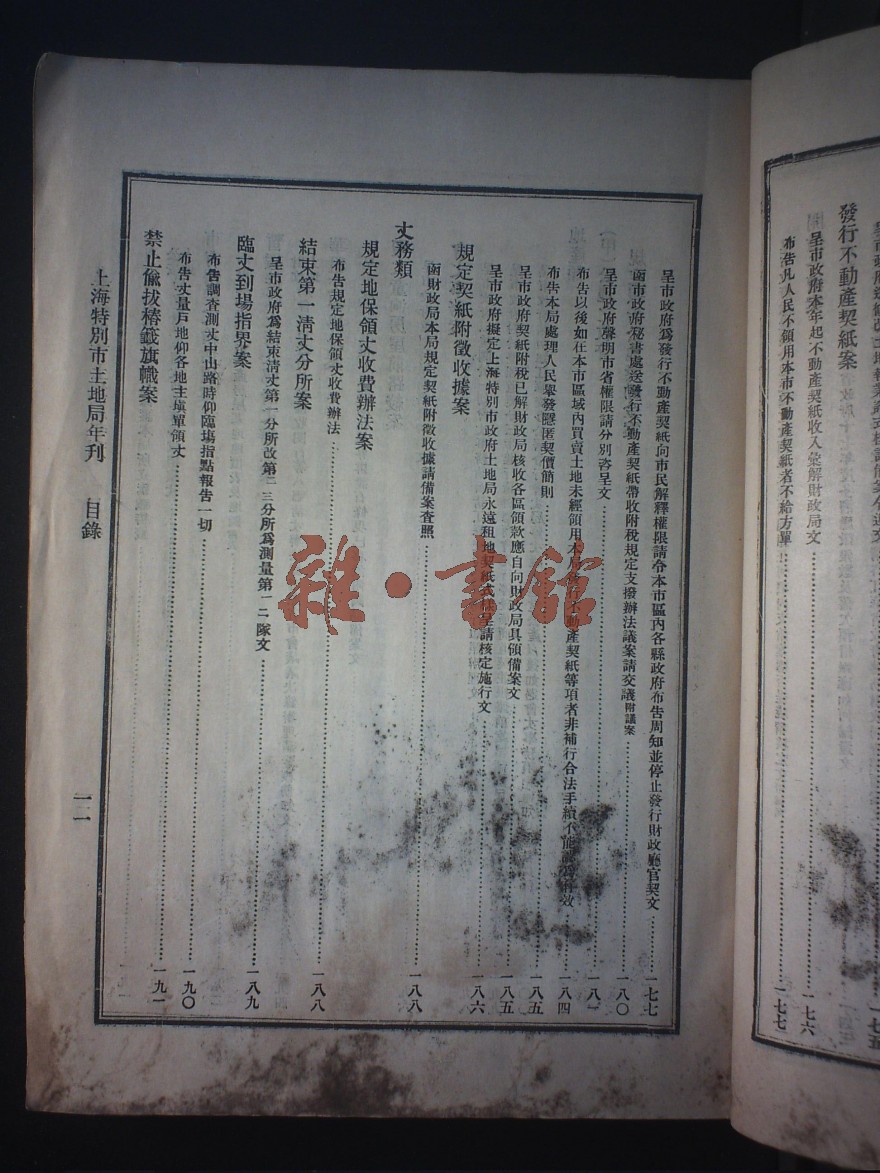 發行不動產契紙案
呈市政府本年起不動產契紙收入彙解財政局文 一七六
布告凡人民不領用本市不動產契紙者不給方單 一七七
呈市政府爲發行不動產契紙向市民解釋權限請令本市區內各縣政府布告周知並停止發行財政廳官契文 一七七
函市政府秘書處送發行不動產契紙帶收附稅規定支撥辦法議案請交議附議案 一八〇
呈市政府聲明市省權限請分別咨呈文 一八一
布告以後如在本市區域內買賣土地未經領用本局發行不動產契紙等項者非補行合法手續不能 效 一八四
布告本局處理人民舉發隱匿契價簡則 一八五
呈市政府契紙附稅已解財政局核收各區領款應自向財政局具領備案文 一八五
呈市政府擬定上海特別市政府土地局永遠租地契紙式樣呈請核定施行文 一八六
規定契紙附徵收據案
函財政局本局規定契紙附徵收據請備案查照 一八八
丈務類
規定地保領丈收費辦法案
布告規定地保領丈收費辦法 一八八
結束第一清丈分所案
呈市政府爲結束清丈第一分所改第二三分所爲測量第一二隊文 一八九
臨丈到場指界案
布告調查測丈中山路時仰臨場指點報告一切 一九〇
布告丈量戶地仰各地主填單領丈 一九一
禁止偸拔樁籤旗幟案
上海特別市土地局年刊 目錄 一二
雜·書館